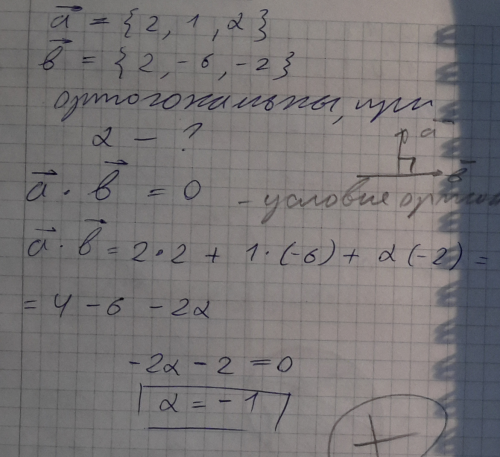 a⃗ = {2, 1, α}
b⃗ = {2, -6, -2}
ортогональны, при
α - ?
a⃗
b⃗
a⃗ · b⃗ = 0 - условие ортогон
a⃗ · b⃗ = 2·2 + 1·(-6) + α(-2) =
= 4 - 6 - 2α
-2α - 2 = 0
α = -1
+